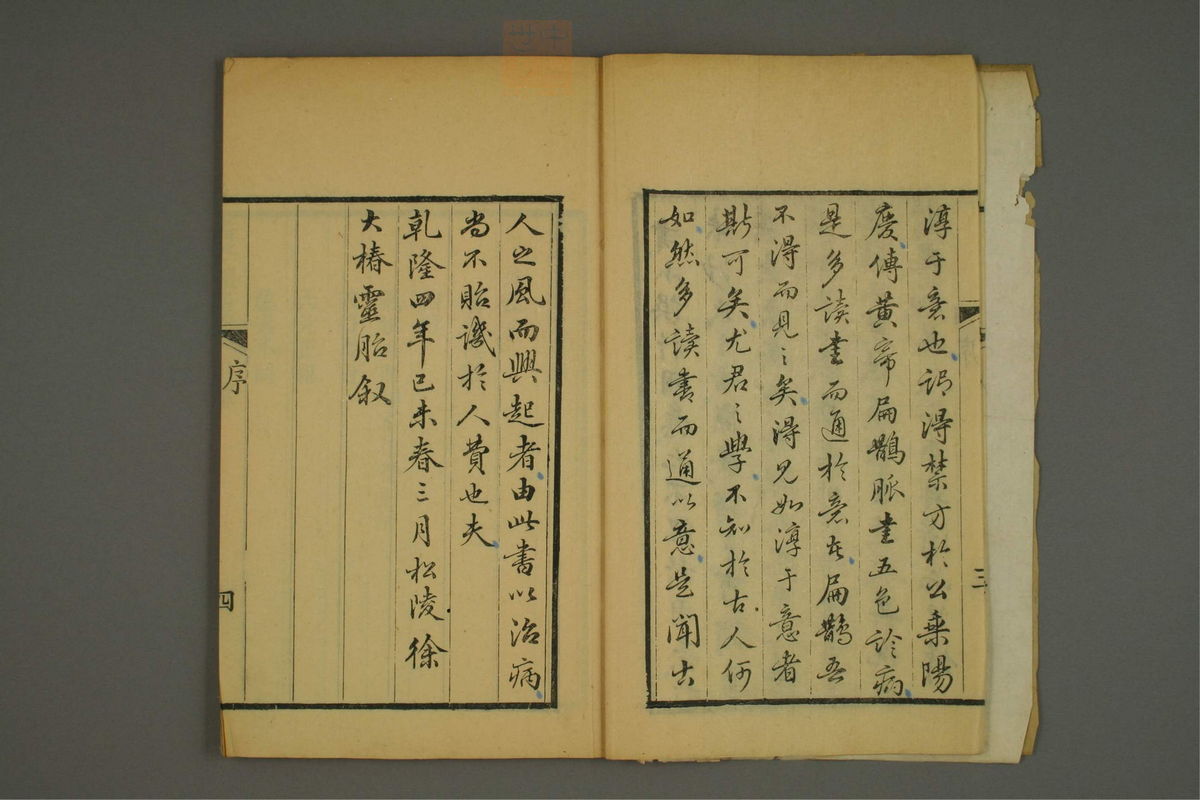 淳于意也謂得禁方於公乘陽
慶傳黄帝扁鵲脈書五色診病
是多讀書而通於意者扁鵲吾
不得而見之矣得見如淳于意者
斯可矣尤君之學不知於古人何
如然多讀書而通以意是聞古
三
人之風而興起者由此書以治病
尚不貽譏於人費也夫
乾隆四年己未春三月松陵徐
大椿靈胎叙
序
四